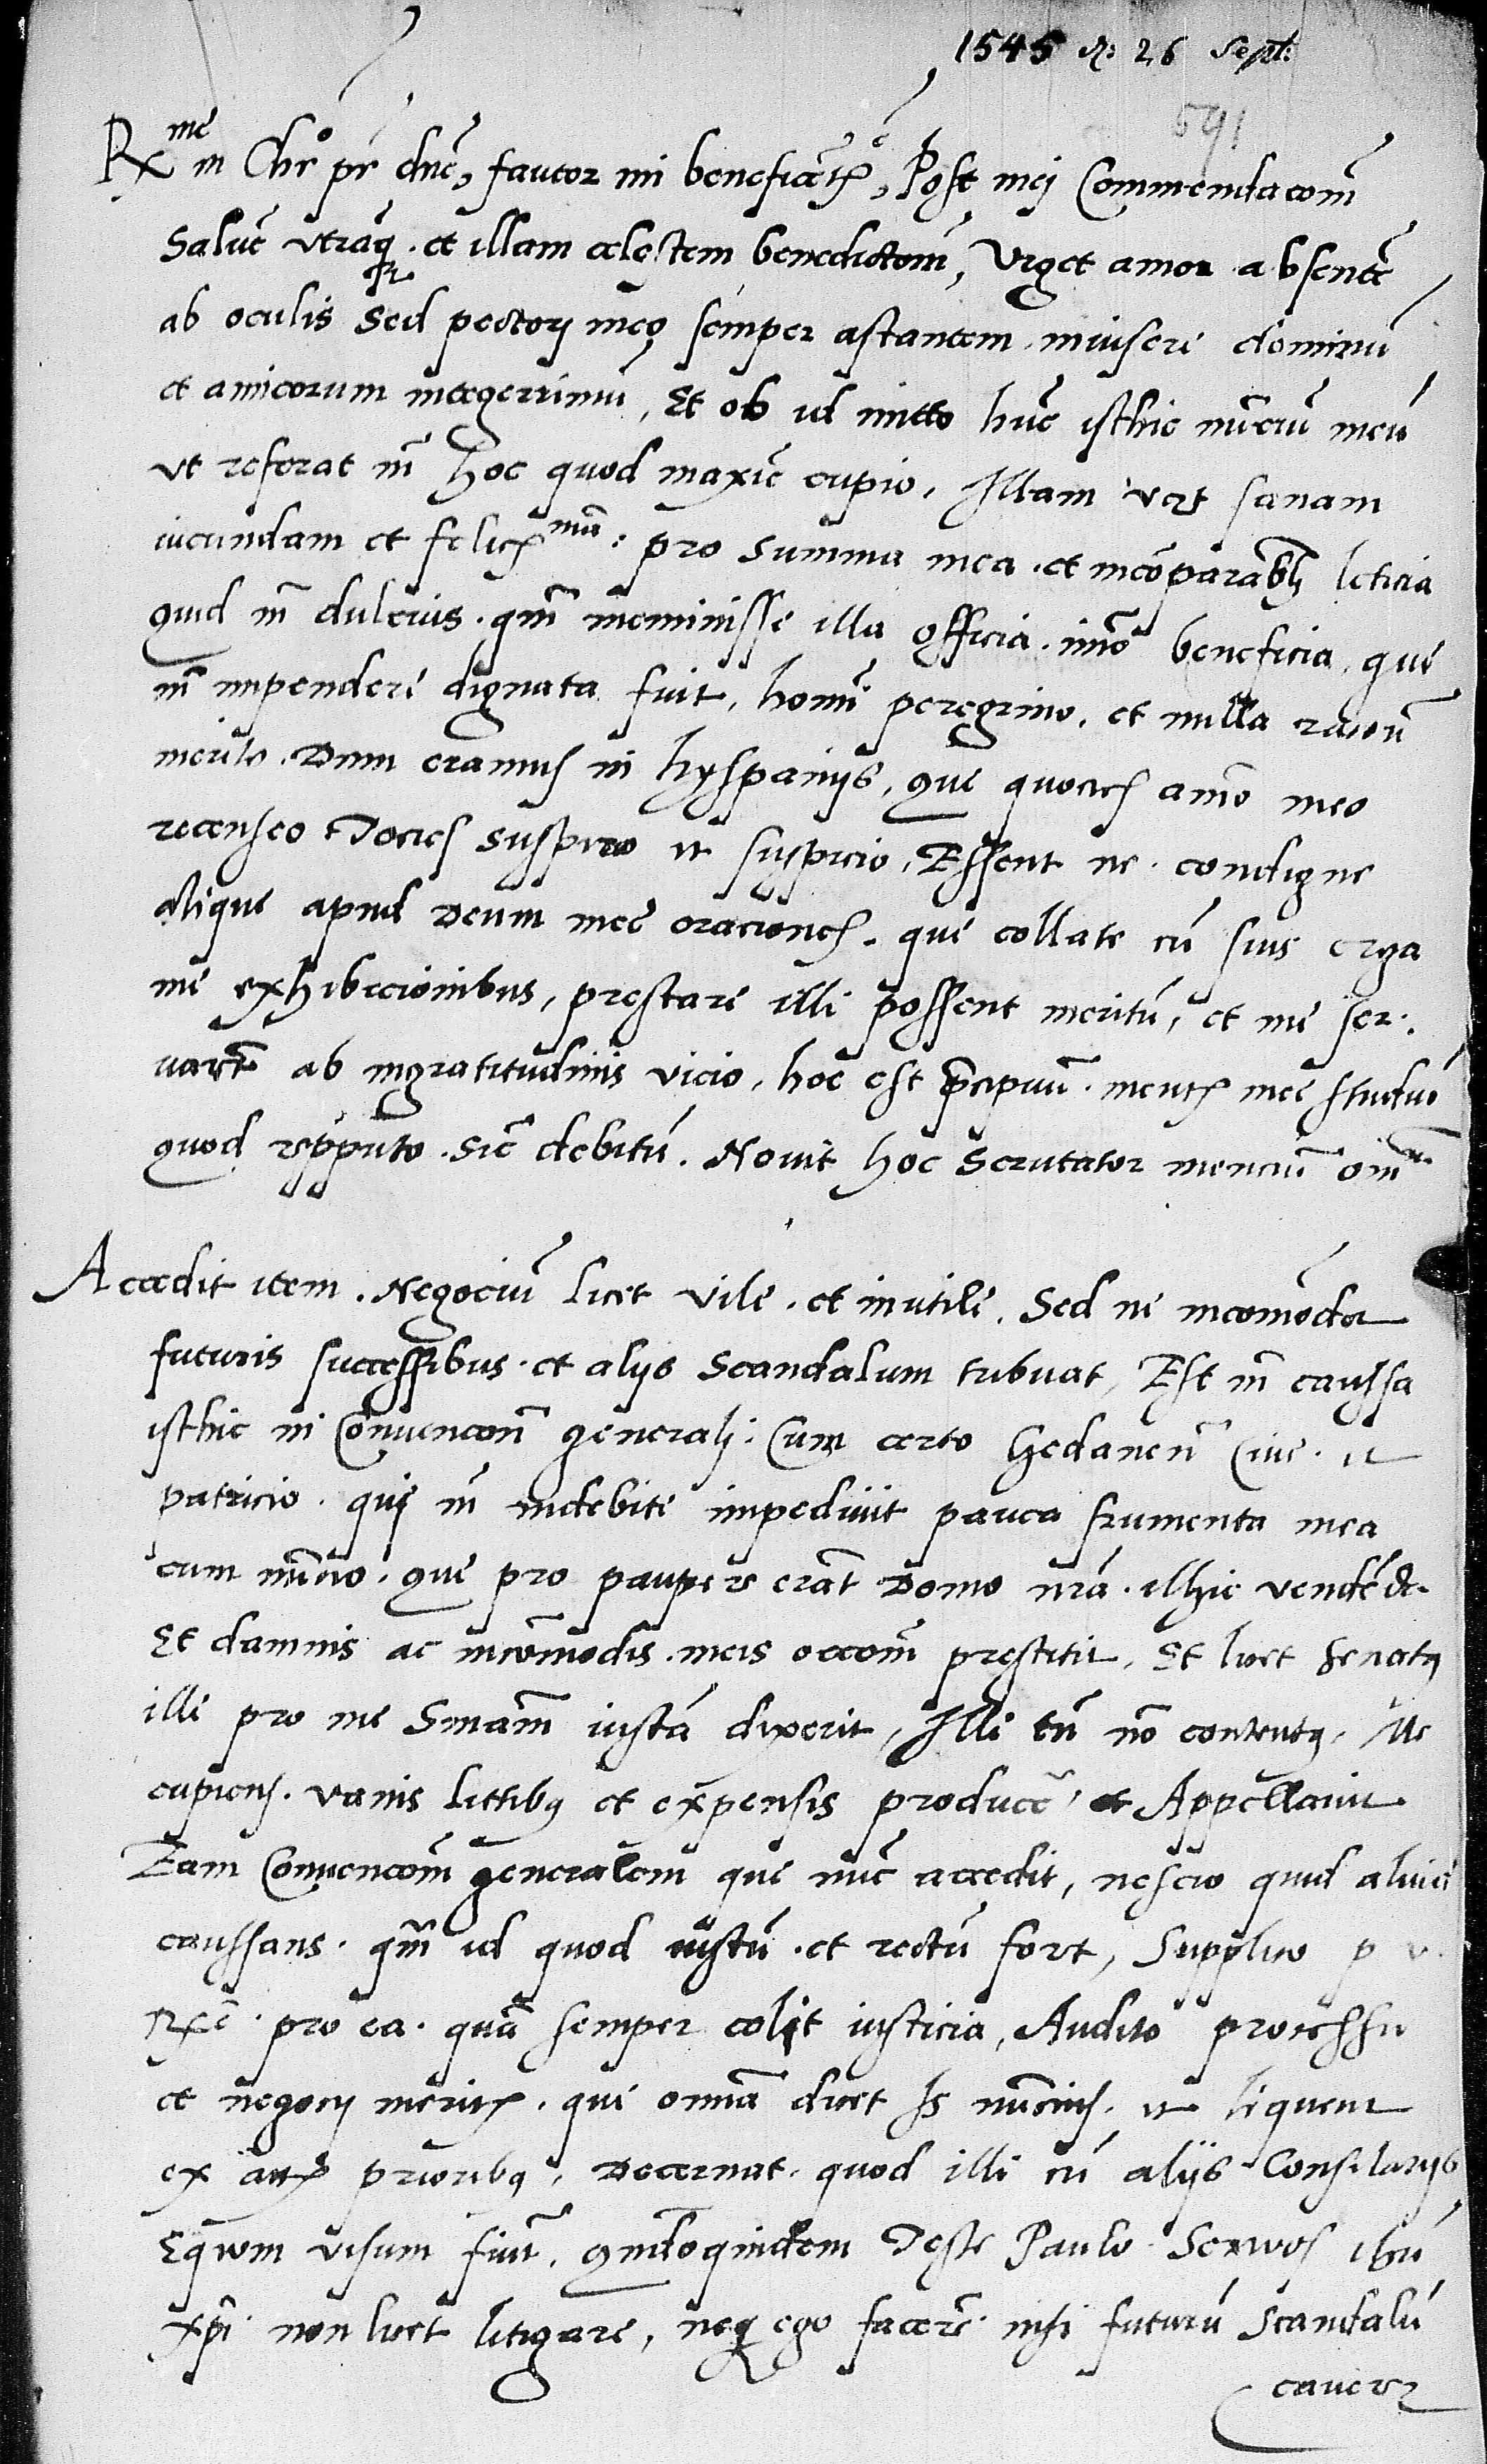 1545 d: 26 Sept:
591
Rx me in Chro pr dne, fautor mi beneficetx, Post mej Commendacom
Salute utraq. et illam celestem benedictom, Urget amor absente
ab oculis Sed pectorj meo semper astantem invisere dominu
et amicorum integerrimu, Et ob id mitto hunc isthic nunciu meu
ut referat m hoc quod maxie cupio, Illam vert sanam
iucundam et felicx ma: pro summa mea et incomparabli leticia
quid m dulcius. qm meminisse illa officia. imo beneficia, que
m impendere dignata fuit, homi peregrino, et nulla racon
merito. Dum eramus in hyspanijs, que quocies amo meo
recenseo Tocies suspiro et suspicio, Essent ne condigne
alique apud Deum mee oraciones. que collate cu suis erga
me exhibicionibus, prestare illi possent meritu, et me ser.
vart ab ingratitudinis vicio, hoc est precipuu mentx mee studiu
quod repputo. sic debitu. Novit hoc Scrutator menciu oim
Accedit item. Negociu licet vile. et inutile. Sed ne incomoda
futuris successibus et alijs Scandalum tribuat, Est m caussa
isthic in Convencon generali. Cum certo Gedanen Cive. et
patricio. qui m indebite impedivit pauca frumenta mea
cum nuncio. que pro paupere erat Domo nra. illhic vendeda.
Et damnis ac incomodis meis occom prestitit. Et licet Senatq
illi pro me Sniam iusta dixerit, Illi tn no contentq, Me
cupiens. vanis littibq et expensis producē et Appellavit
Eam Convencom generalem que nuc accedit, nescio quid aliud
caussans. qm id quod iustu et rectu foret, Supplico p v.
Rxe pro ea. qua semper colit iusticia, Audito processu
et negocij meritx. qui omia dicet Is nuncius et liquent
ex actx prioribq, Decernat. quod illi cu aliis Consilarijs
Equom visum fuit. quidoquidem Teste Paulo Servos Ihu
xpi non licet litigare, neq ego facere nisi futuru Scandalu
cavere